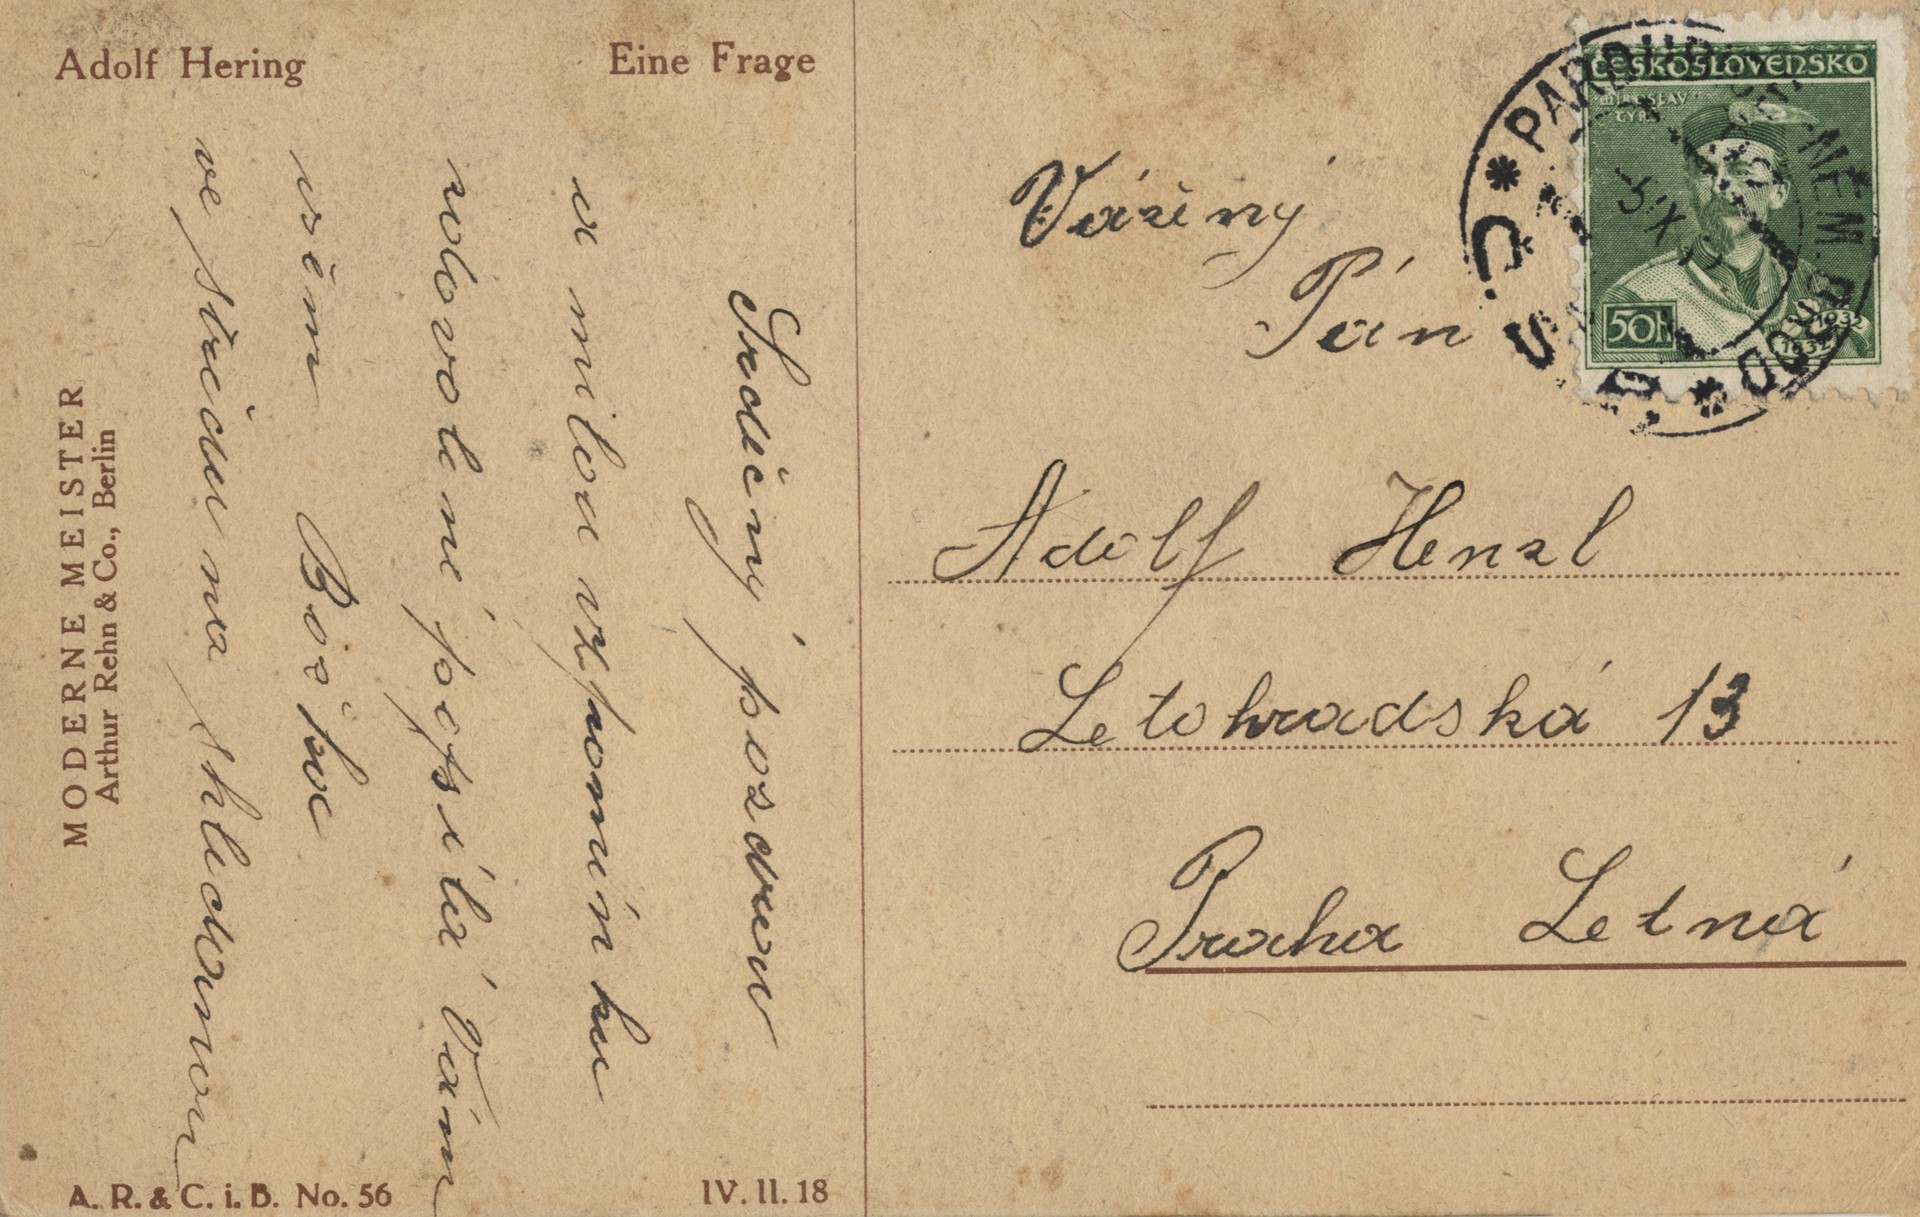 Adolf Hering
Eine Frage
Srdečný pozdrav
a milou vzpomínku
volovolení posílá Vám
všem Božka
ve středu na shledanou
MODERNE MEISTER
Arthur Rehn & Co., Berlin
A. R. & C. i. B. No. 56
IV. II. 18
ČESKOSLOVENSKO
MIROSLAV
TYRŠ
50h
1832
1932
PARDUBICE
NĚM. BROD
Č. S. P.
Vážený
Pán
Adolf Henzl
Letohradská 13
Praha Letná